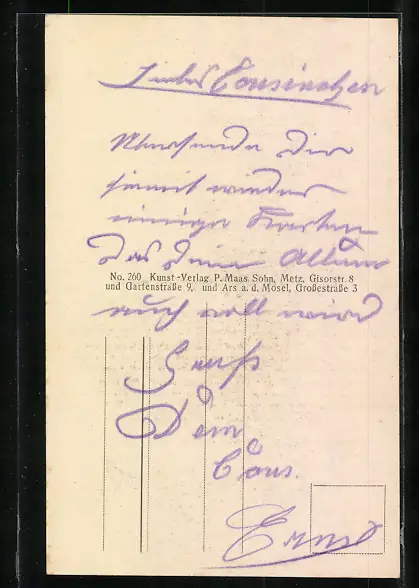 Liebes Cousinchen
Übersende Dir
hiermit wieder
einige Karten
Das Dein Album
No. 260 Kunst-Verlag P. Maas Sohn, Metz, Gisorstr. 8
und Gartenstraße 9, und Ars a. d. Mosel, Großestraße 3
auch voll wird
Gruß
Dein
Cous.
Ernst